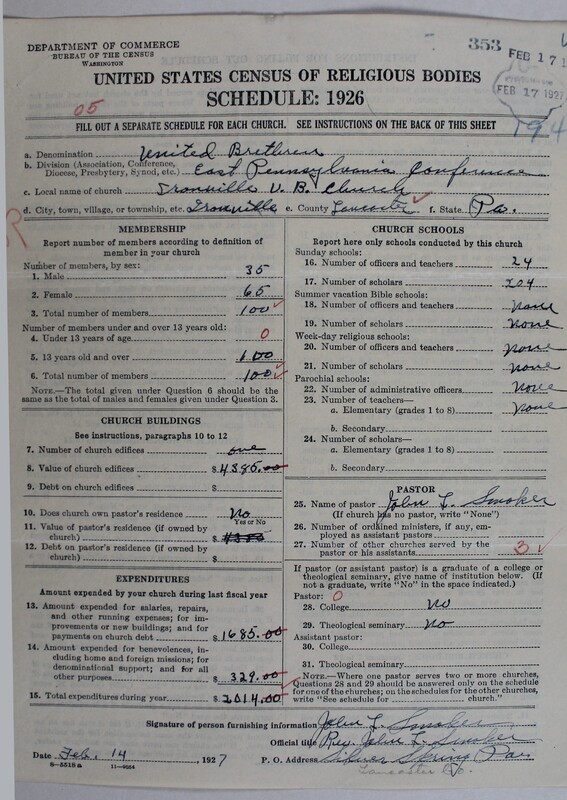 DEPARTMENT OF COMMERCE
BUREAU OF THE CENSUS
WASHINGTON
353
FEB 17 1
FEB 17 1927
UNITED STATES CENSUS OF RELIGIOUS BODIES
SCHEDULE: 1926
05
194
FILL OUT A SEPARATE SCHEDULE FOR EACH CHURCH. SEE INSTRUCTIONS ON THE BACK OF THIS SHEET
a. Denomination United Brethren
b. Division (Association, Conference, Diocese, Presbytery, Synod, etc.) East Pennsylvania Conference
c. Local name of church Ironville U. B. Church
d. City, town, village, or township, etc. Ironville e. County Lancaster f. State Pa.
R
MEMBERSHIP
Report number of members according to definition of
member in your church
Number of members, by sex:
1. Male 35
2. Female 65
3. Total number of members 100
Number of members under and over 13 years old:
4. Under 13 years of age 0
5. 13 years old and over 100
6. Total number of members 100
NOTE.—The total given under Question 6 should be
same as the total of males and females given under Question 3.
CHURCH BUILDINGS
See instructions, paragraphs 10 to 12
7. Number of church edifices one
8. Value of church edifices $4385.00
9. Debt on church edifices $
10. Does church own pastor's residence No
Yes or No
11. Value of pastor's residence (if owned by
church) $
12. Debt on pastor's residence (if owned by
church) $
EXPENDITURES
Amount expended by your church during last fiscal year
13. Amount expended for salaries, repairs,
and other running expenses; for im-
provements or new buildings; and for
payments on church debt $1685.00
14. Amount expended for benevolences, in-
cluding home and foreign missions; for
denominational support; and for all
other purposes $329.00
15. Total expenditures during year $2014.00
CHURCH SCHOOLS
Report here only schools conducted by this church
Sunday schools:
16. Number of officers and teachers 24
17. Number of scholars 204
Summer vacation Bible schools:
18. Number of officers and teachers None
19. Number of scholars None
Week-day religious schools:
20. Number of officers and teachers None
21. Number of scholars None
Parochial schools:
22. Number of administrative officers None
23. Number of teachers—
a. Elementary (grades 1 to 8) None
b. Secondary
24. Number of scholars—
a. Elementary (grades 1 to 8)
b. Secondary
PASTOR
25. Name of pastor John L. Smoker
(If church has no pastor, write "None")
26. Number of ordained ministers, if any, em-
ployed as assistant pastors
27. Number of other churches served by the
pastor or his assistants 3
If pastor (or assistant pastor) is a graduate of a college or
theological seminary, give name of institution below. (If
not a graduate, write "No" in the space indicated.)
Pastor: 0
28. College No
29. Theological seminary No
Assistant pastor:
30. College
31. Theological seminary
NOTE.—Where one pastor serves two or more churches,
Questions 28 and 29 should be answered only on the schedule
for one of the churches; on the schedules for the other churches,
write "See schedule for church."
Signature of person furnishing information John L. Smoker
Official title Rev. John L. Smoker
Date Feb. 14 1927 P. O. Address Silver Spring Pa.
8—5518a 11—9054
Lancaster Co.